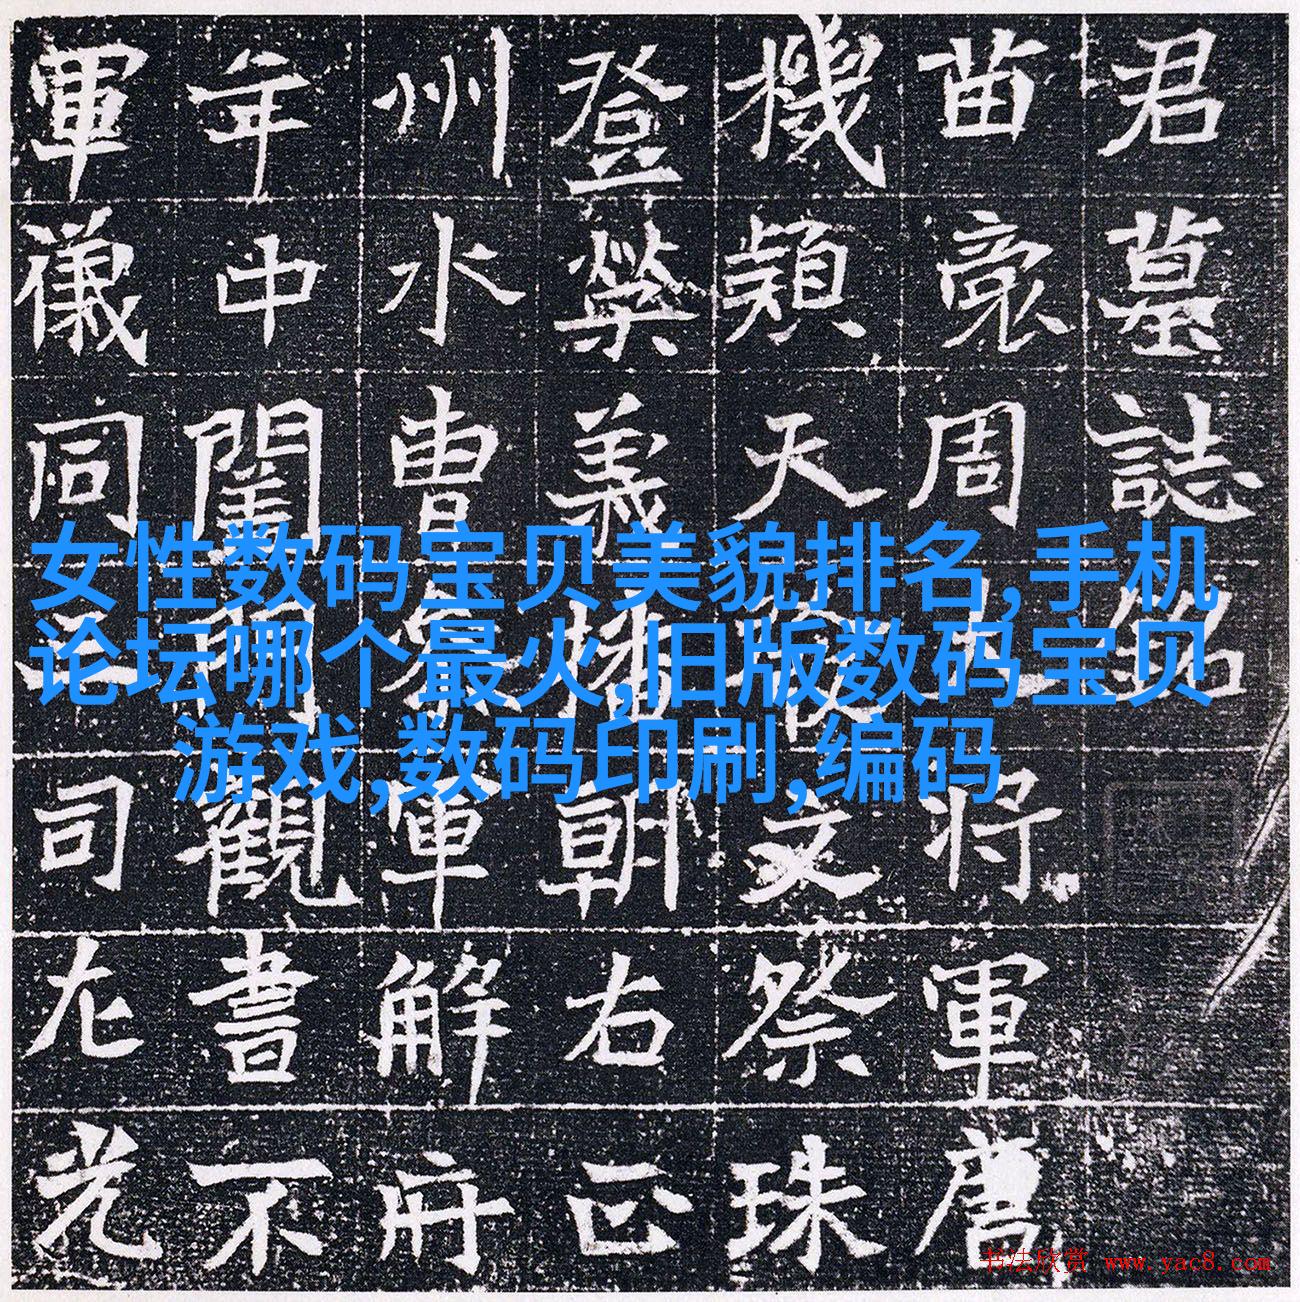 君墓誌銘
苗裔周将軍
機穎天文祭珠
登榮義朝右正
州水曹參軍解府
年中閨門觀書不
軍儀同三司左光
女性数码宝贝美貌排名,手机
论坛哪个最火,旧版数码宝贝
游戏,数码印刷,编码
书法欣赏 www.yac8.com